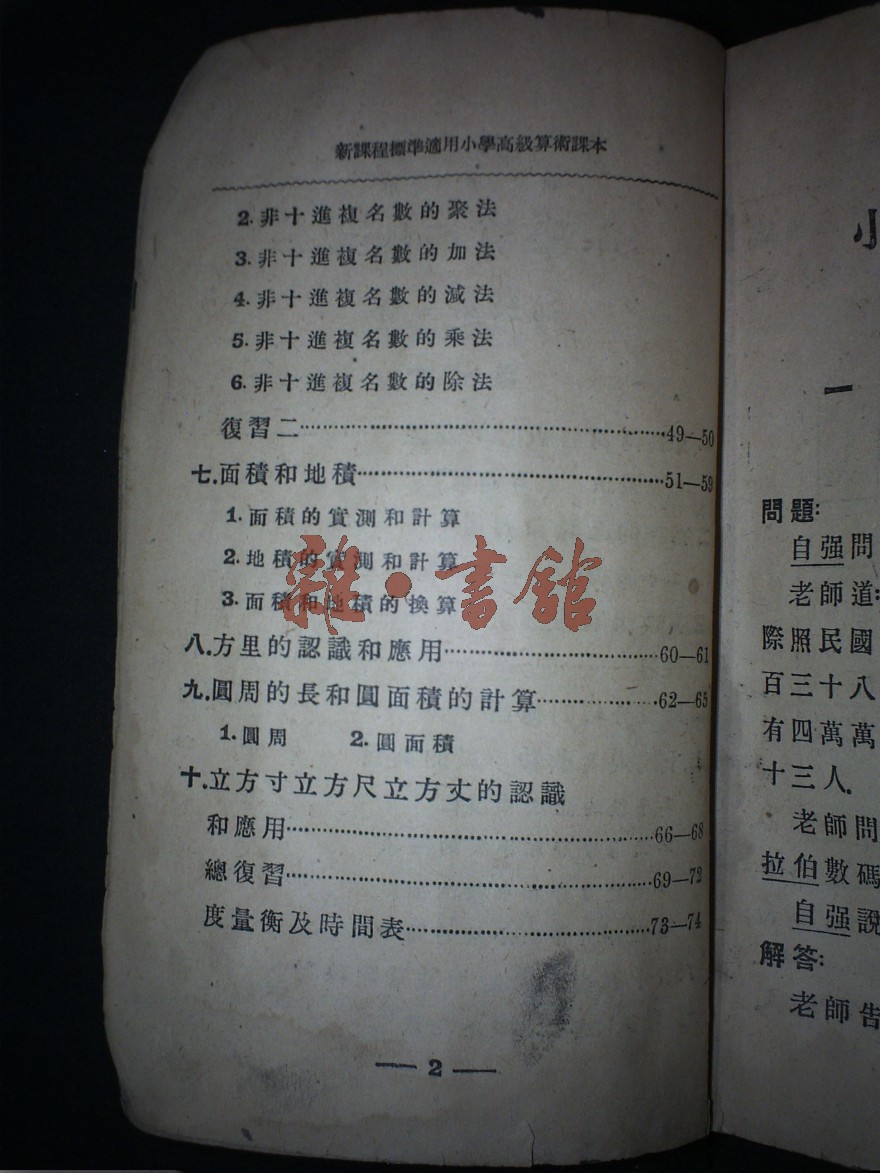 新課程標準適用小學高級算術課本
2.非十進複名數的聚法
3.非十進複名數的加法
4.非十進複名數的減法
5.非十進複名數的乘法
6.非十進複名數的除法
復習二……49—50
七.面積和地積……51—59
1.面積的實測和計算
2.地積的實測和計算
3.面積和地積的換算
八.方里的認識和應用……60—61
九.圓周的長和圓面積的計算……62—65
1.圓周 2.圓面積
十.立方寸立方尺立方丈的認識
和應用……66—68
總復習……69—72
度量衡及時間表……73—74
— 2 —
雜·書館
小
一
問題:
自强問
老師道:
際照民國
百三十八
有四萬萬
十三人.
老師問
拉伯數碼
自强說
解答:
老師告